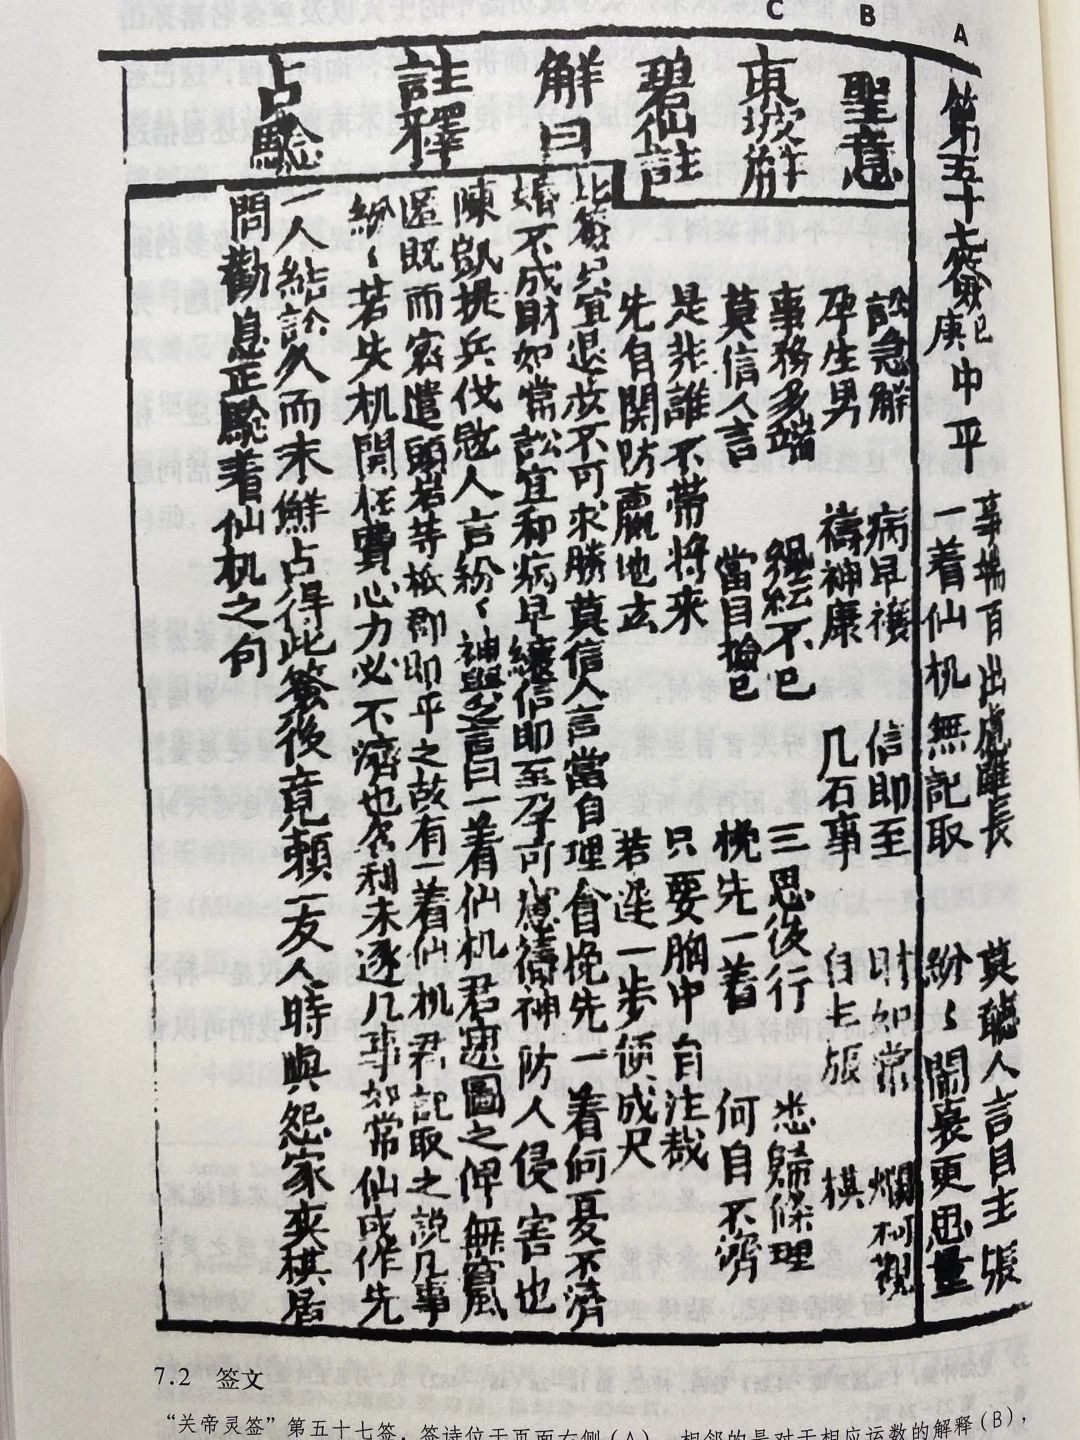 C B A
第五十七簽 庚巳 中平
事端百出慮雖長 莫聽人言自主張
一着仙机無記取 紛〻鬧裏更思量
聖意
訟急解 病早禳 信即至 財如常 爛柯觀
孕生男 禱神康 几百事 自占旅 棋
東坡解
事務多端 繩紜不已 三思後行 悉歸條理
莫信人言 當自撿已 挽先一着 何自不濟
碧仙註
是非誰不帶將來 只要胸中自注裁
先自関防贏地去 若逢一步便成尺
解曰
此簽只宜退步不可求勝莫信人言當自理會挽先一着何憂不濟
婚不成財如常訟宜和病早禳信即至孕可慮禱神防人侵害也
註釋
陳凱提兵伐敌人言紛〻神與之言曰一着仙机君密圖之俾無竄
匿既而密遣頭岩等抵郡即平之故有一着仙机君記取之說凡事
紛〻若失机関徃費心力必不濟也名利未遂凡事如常仙成作先
占驗
一人結訟久而未解占得此簽後竟賴一友人時與怨家奕棋居
問勸息正驗着仙机之句
7.2 签文
“关帝灵签”第五十七签，签诗位于页面右侧（A），相邻的是对于相应运数的解释（B），